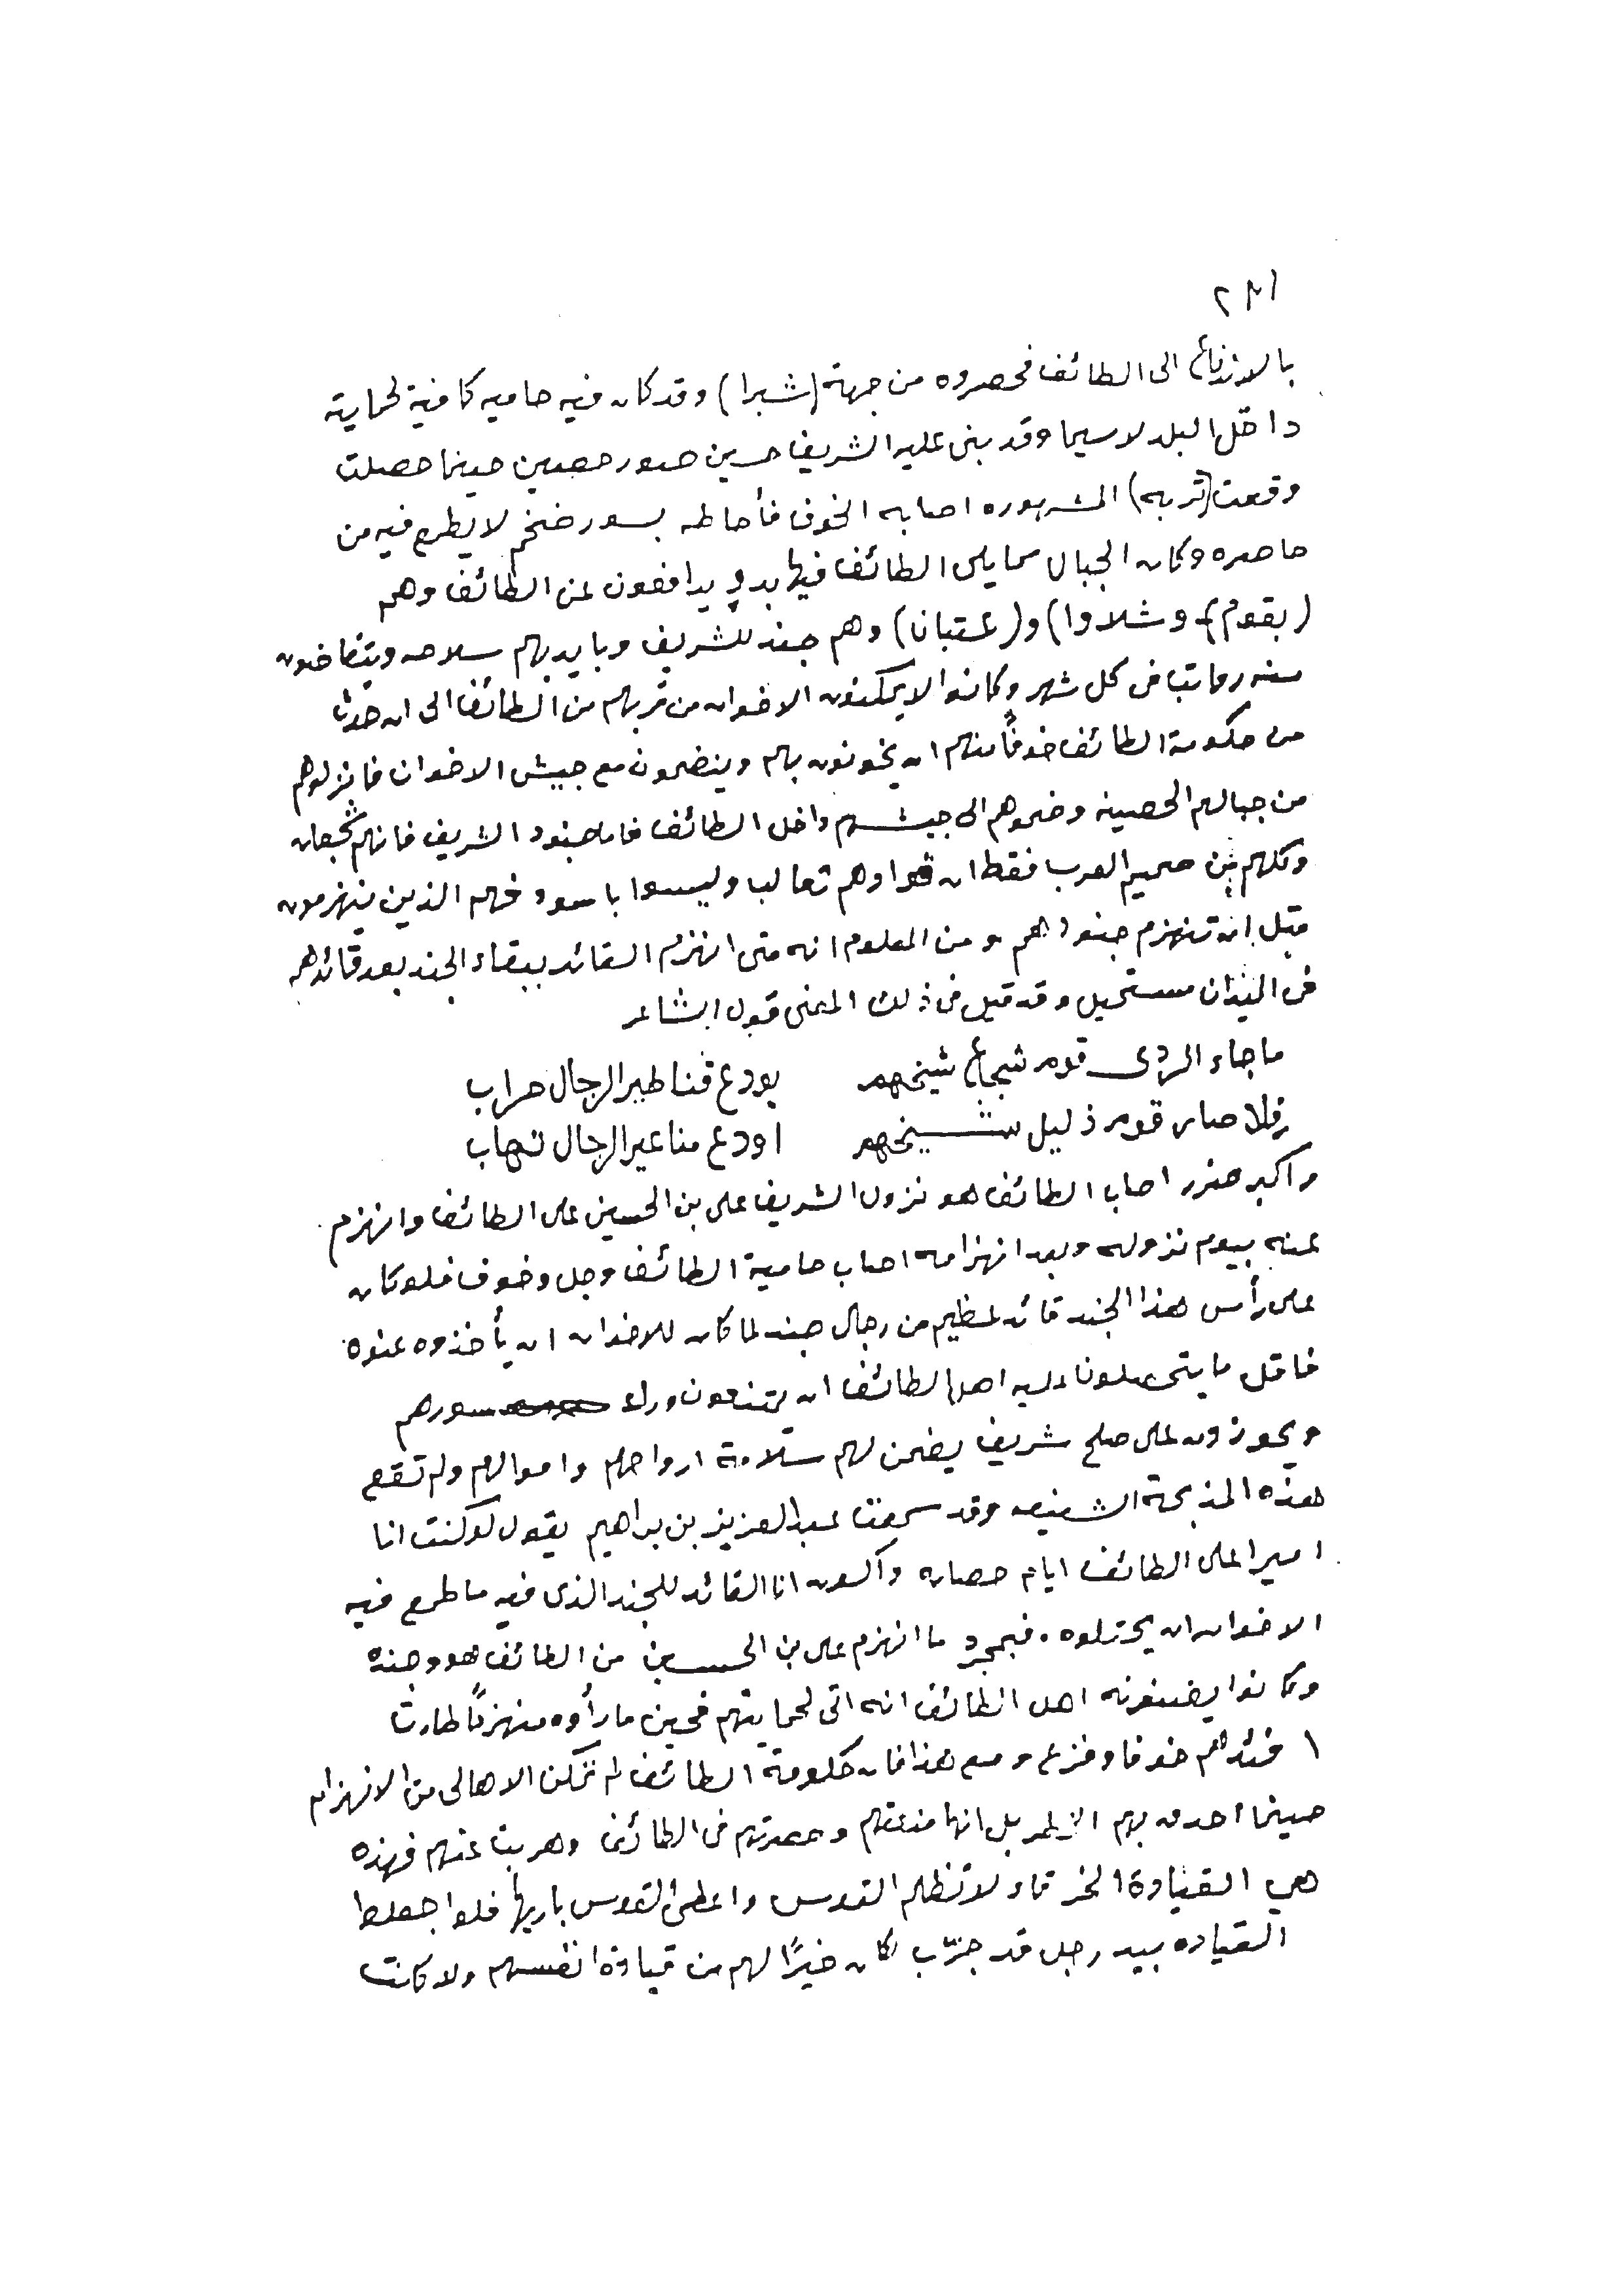 ٢٣١
بالاندفاع الى الطائف فحصروه من جهة (شبرا) وقد كان فيه حاميه كافية لحماية
داخل البلد لاسيما وقد بنى عليه الشريف حسين سور حصين حينما حصلت
وقعت (تربه) المشهوره اصابه الخوف فأحاطه بسور ضخم لا يطمع فيه من
حاصره وكان الجبال مما يلى الطائف فيها بدو يدافعون عن الطائف وهم
(بقوم) وشلاوا) و(عتبانا) وهم جند للشريف وبايديهم سلاحه ويتقاضون
منه رواتب فى كل شهر وكانوا لا يمكنون الاخوان من قربهم من الطائف الى ان حدث
من حكومة الطائف خوفاً منهم ان يخونون بهم وينضمون مع جيش الاخوان فانزلوهم
من جبالهم الحصينه وضموهم الى جيشهم داخل الطائف فاما جنود الشريف فانهم شجعان
وكلهم من صميم العرب فقط ان قوادهم ثعالب وليسوا باسود فهم الذين ينهزمون
قبل ان تنهزم جنودهم ومن المعلوم انه متى انهزم القائد ببقاء الجند بعد قائدهم
فى الميدان مستحيل وقد قيل فى ذلك المعنى قول الشاعر
ما جاء الردى قوم شجاع شيخهم يودع قناطير الرجال حراب
ولا صار قوم ذليل شيخهم اودع مناعير الرجال نهاب
واكبر ضرر اصاب الطائف هو نزول الشريف على بن الحسين على الطائف وانهزم
عنه بيوم نزوله وبعد انهزامه اصاب حامية الطائف وجل وخوف فلو كان
على رأس هذا الجند قائد عظيم من رجال جند لما كان للاخوان ان يأخذوه عنوه
فاقل ما يتحصلون عليه اهل الطائف ان يمتنعون وراء سورهم
ويحوزون على صلح شريف يضمن لهم سلامة ارواحهم واموالهم ولم تقع
هذه المذبحة الشنيعه وقد سمعت عبد العزيز بن براهيم يقول لو كنت انا
اميرا على الطائف ايام حصاره واكون انا القائد للجند الذى فيه ما طمع فيه
الاخوان ان يحتلوه . فبمجرد ما انهزم على بن الحسين من الطائف هو وجنده
وكانوا يضنونه اهل الطائف انه اتى لحمايتهم فحين ما رأوه منهزماً طارت
افئدهم خوفا وفزع ومع هذا فان حكومة الطائف لم تمكن الاهالى من الانهزام
حينما احدق بهم الخطر بل انها منعتهم وحصرتهم فى الطائف وهربت عنهم فهذه
هي القيادة الخرقاء لا تظلم القوس واعطى القوس باريها فلو جعلوا
القياده بيد رجل قد جرّب لكان خيرًا لهم من قيادة انفسهم ولا كانت